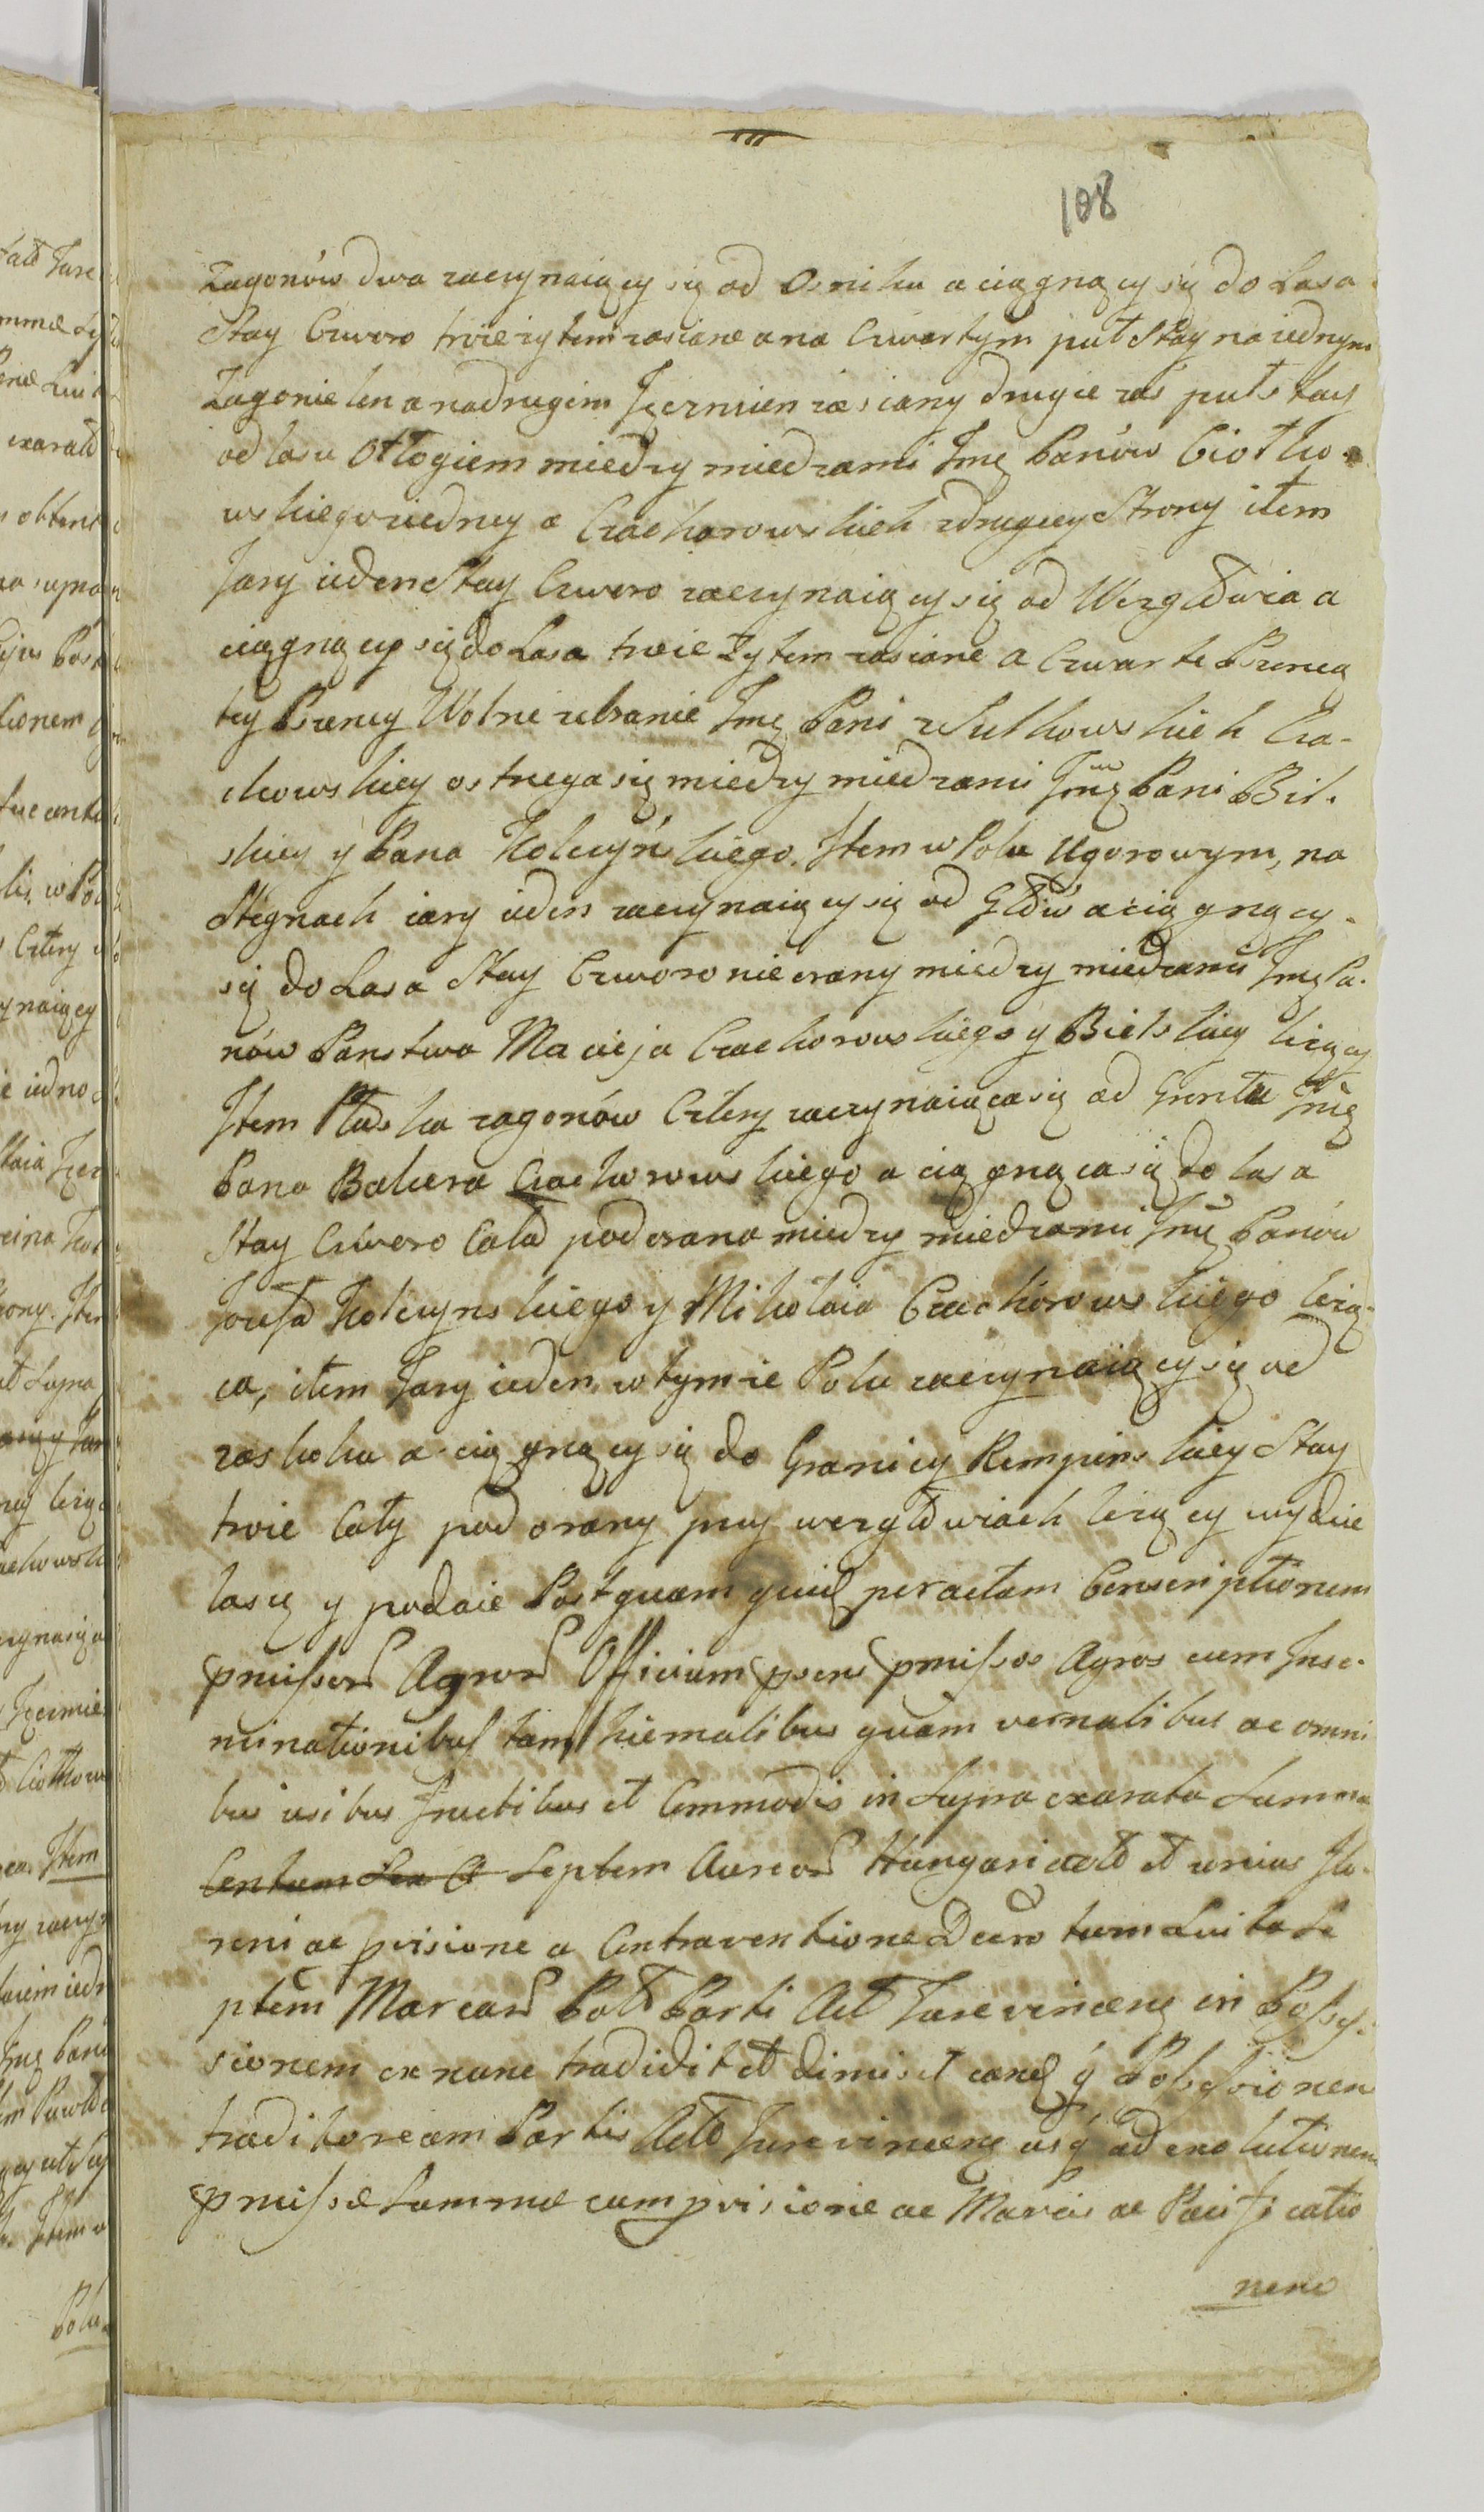 108
Zagonów dwa zaczynaiący się od Osniku a ciągnący się do Lasa
Stay Czworo troie żytem zasiane a na Czwartym puł Stay na iednym
Zagonie len a nadrugim Jęczmien zasiany drugie zas puł stay
od lasu Otłogiem miedzy miedzami Jmę Panów Ciołko-
wskiego ziedney a Czachorowskich zdrugiey Strony item
Jary ieden Stay Czworo zaczynaiący się od a
ciągnący się do Lasa troie Zytem zasiane a Czwarte Przenicą
tey Przenicy Wolne zebranie Jmę Pani zSułkowskich Cza-
chowskiey ostrzega się miedzy miedzami Jmę Pani Bil-
skiey y Pana Kolczyńskiego. Item w Polu Ugorowym, na
Stegnach iary ieden zaczynaiący się od a ciągnący-
się do Lasa Stay Czworo nieorany miedzy miedzami Jmę Pa-
nów Panstwa Macieja Czachorowskiego y Bielskiey leżący
Item Płaska zagonów Cztery zaczynaiąca się od Gruntu Jmę
Pana Czachorowskiego a ciągnąca się do lasa
Stay Czworo Cała podorana miedzy miedzami Jmę Panów
Jozefa Kolczynskiego y Mikołaia Czachorowskiego leżą-
ca, item Jary ieden w tymże Polu zaczynaiący się od
a ciągnący się do Granicy Rempinskiey Stay
troie Cały podorany przy leżący wydzie
y podaie Postquam peractam Conscriptionem
pmissor Agror Officium psens pmissos Agros cum Inse-
minationibus tam hiemalibus quam vernalibus ac omni
bus usibus fructibus et Commodis in Supra exarata Summa
Centum Septem Aureor Hungaricał et unius Flo-
reni ac pvisione a Contraventione tum Luita Se
ptem Marcar Parti Act Jurevincenę in Posses-
sionem ex nunc tradidit et dimisit Possessionem
traditoream Partis Act Jurevincenę usq ad exolutionem
pmissæ Summæ cum pvisione ac Marcis ac Pacificatio
nem